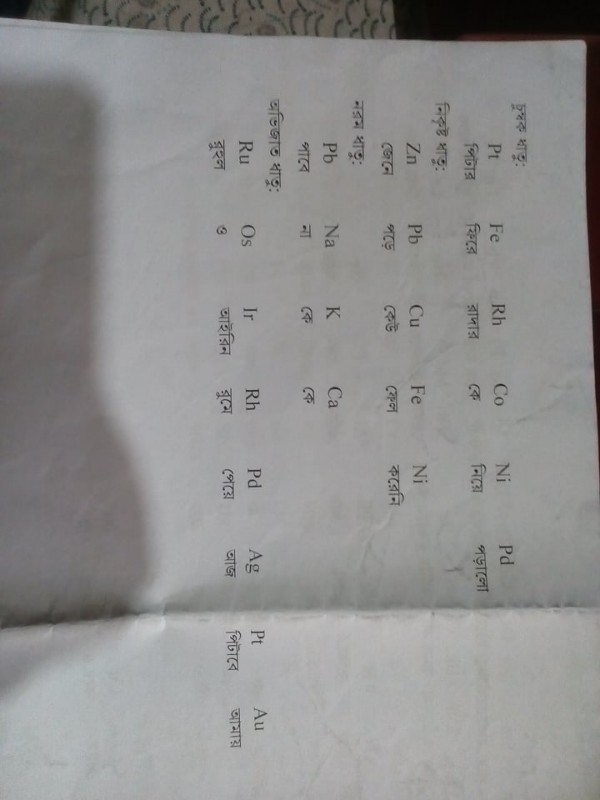 চুম্বক ধাতু:
Pt Fe Rh Co Ni Pd
পিটার ফিরে রাদার কে নিয়ে পড়ালো
নিকৃষ্ট ধাতু:
Zn Pb Cu Fe Ni
জেনে পড়ে কেউ ফেল করেনি
নরম ধাতু:
Pb Na K Ca
পাবে না কে কে
অভিজাত ধাতু:
Ru Os Ir Rh Pd Ag Pt Au
রুহুল ও আইরিন রুমে পেয়ে আজ পিটাবে আমায়